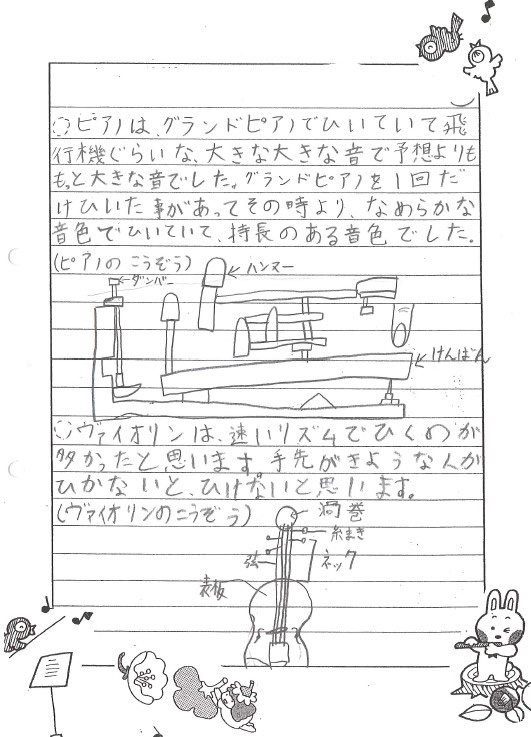 ○ピアノは、グランドピアノでひいていて飛
行機ぐらいな、大きな大きな音で予想よりも
もっと大きな音でした。グランドピアノを1回だ
けひいた事があってその時より、なめらかな
音色でひいていて、持長のある音色でした。
(ピアノのこうぞう)
ハンマー
ダンパー
けんばん
○ヴァイオリンは、速いリズムでひくのが
多かったと思います。手先がきような人が
ひかないと、ひけないと思います。
(ヴァイオリンのこうぞう)
渦巻
糸まき
弦
ネック
表板